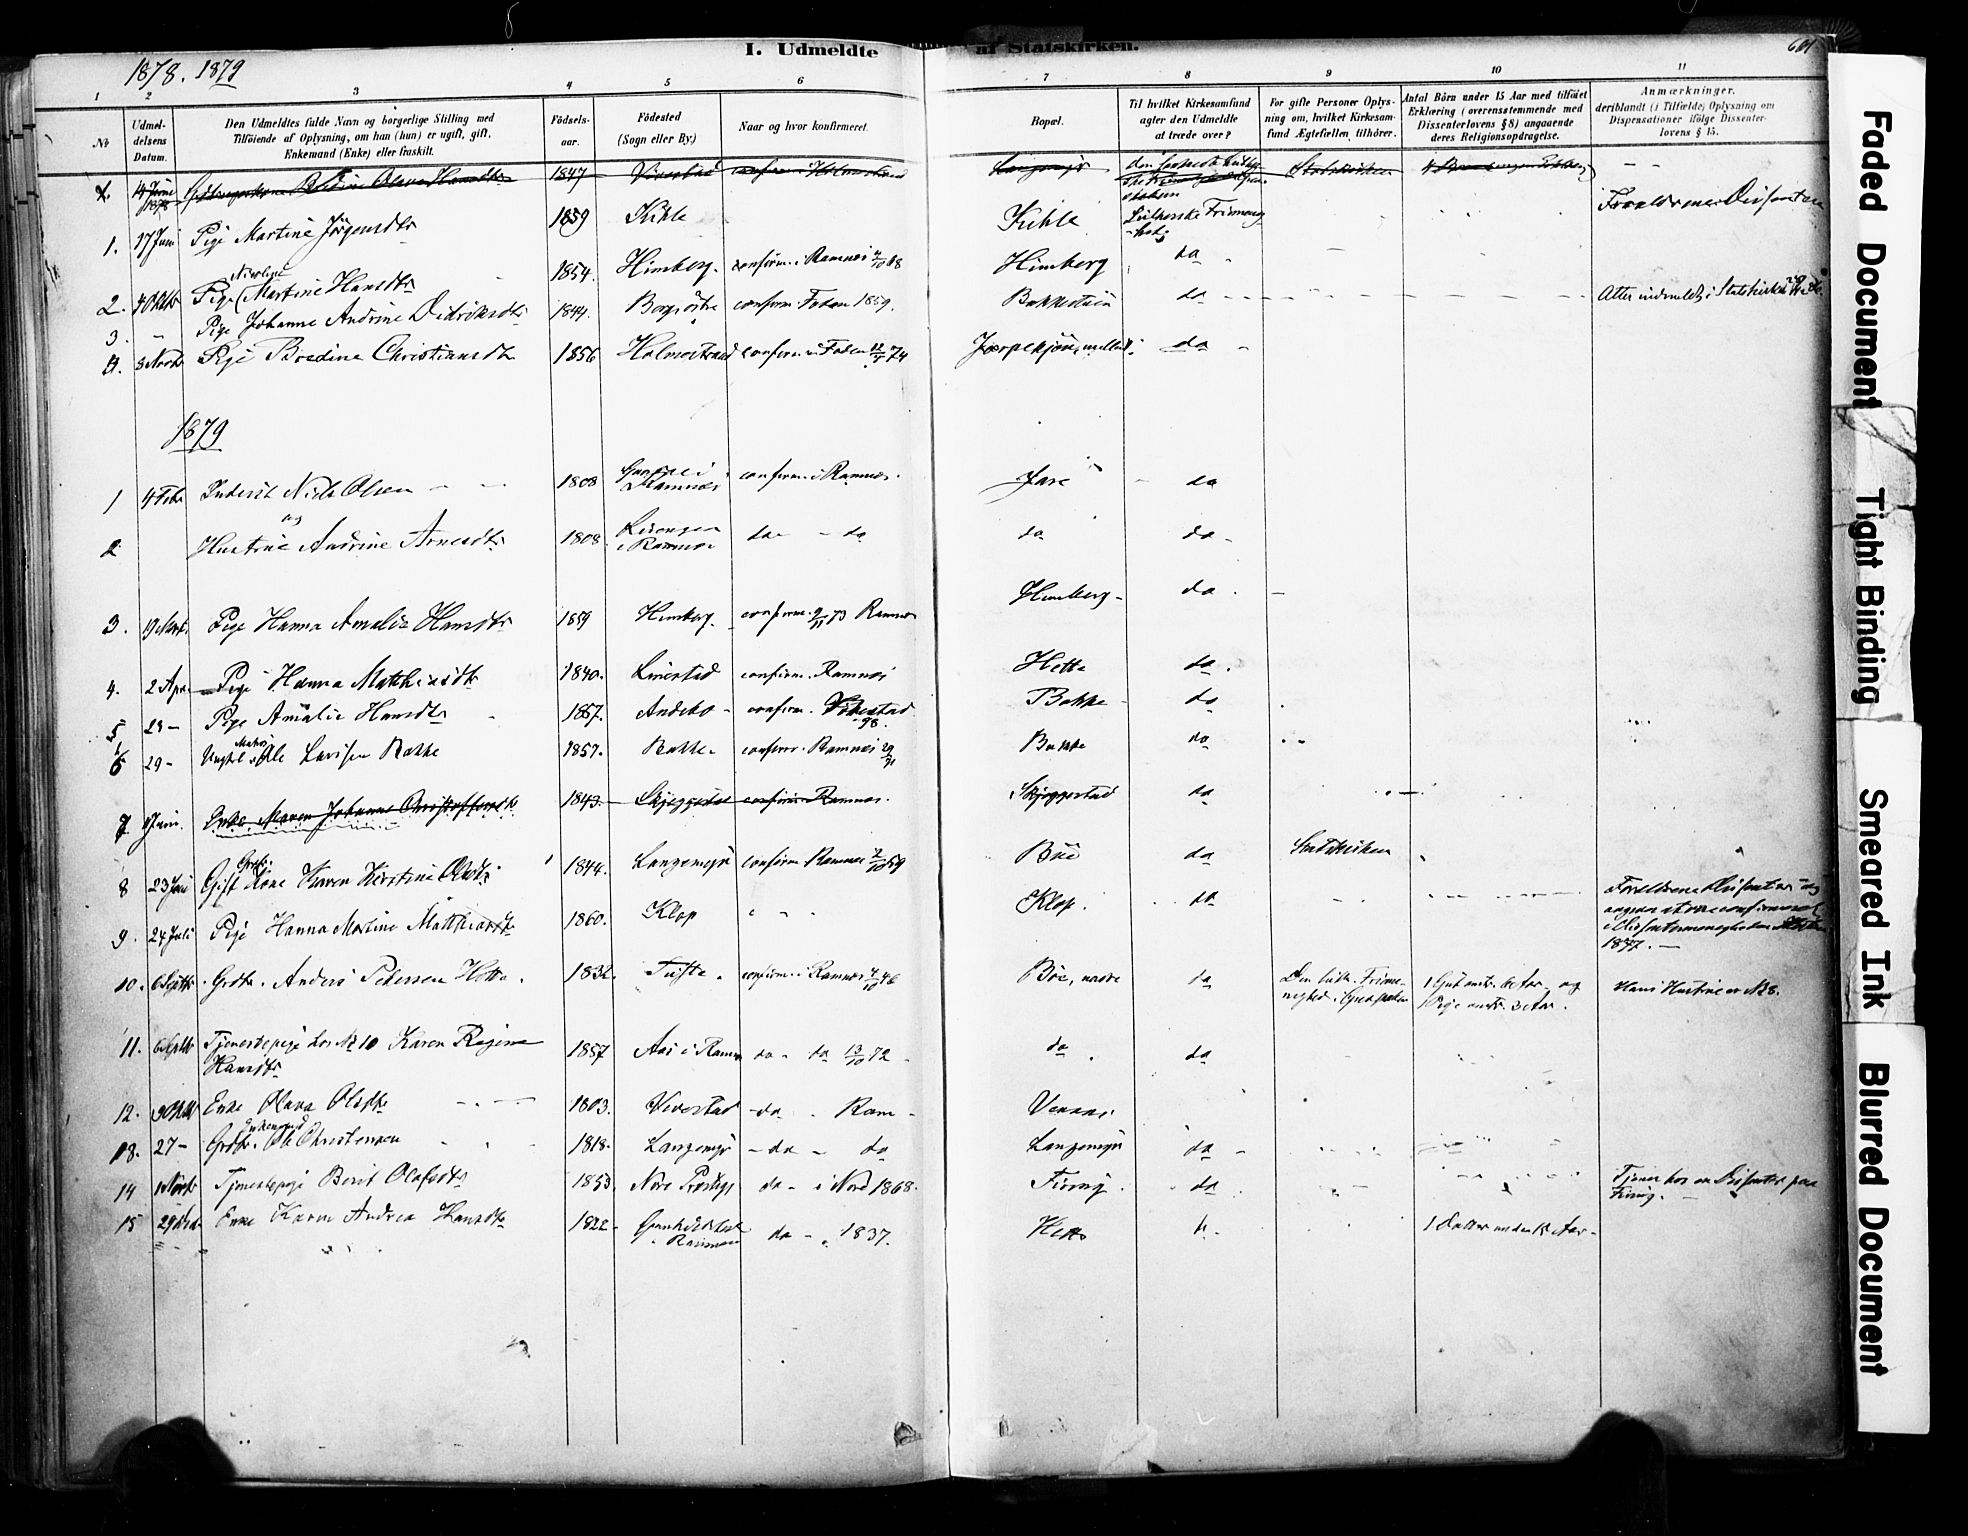 I. Udmeldte af Statskirken.
1878. 1879
1 2 3 4 5 6 7 8 9 10 11
No
Udmeldelsens Datum.
Den Udmeldtes fulde Navn og borgerlige Stilling med
Tilföiende af Oplysning, om han (hun) er ugift, gift,
Enkemand (Enke) eller fraskilt.
Födselsaar.
Födested
(Sogn eller By.)
Naar og hvor konfirmeret.
Bopæl.
Til hvilket Kirkesamfund
agter den Udmeldte
at træde over?
For gifte Personer Oplysning
om, hvilket Kirkesamfund
Ægtefællen tilhörer.
Antal Börn under 15 Aar med tilföiet
Erklæring (overensstemmende med
Dissenterlovens § 8) angaaende
deres Religionsopdragelse.
Anmærkninger,
deriblandt (i Tilfælde) Oplysning om
Dispensationer ifölge Dissenterlovens
§ 15.
14 Juni 1878 Olava Hansdtr 1847 Vivestad Langemyr Statskirken
1. 17 Juni Pige Martine Jörgensdtr 1859 Kihle Kihle Lutherske Frimenighed Forældrene Dissentere
2. 4 Oktbr Pige Nicoline Martine Hansdtr 1854. Himberg. confirm. i Ramnæs 4/10 68 Himberg do
3. Pige Johanne Andrine Didriksdtr 1844. confirm. Foden 1859. do Atter indmeldt i Statskirken
4. 3 Novbr Pige Bredine Christiansdtr 1856 Holmestrand confirm. i do
1879
1 4 Febr Inderst Nils Olsen 1808 i Ramnæs confirm. i Ramnæs. Jare do
og
2 Hustrue Andrine Arnesdtr 1808 i Ramnæs do - do do do
3. 19 Mart. Pige Hanna Amalie Hansdtr 1859 Himberg. confirm. 9/11 73 Ramnæs Himberg - do.
4. 2 Apr. Pige Hanna Mathiasdtr 1840. Linestad confirm. Ramnæs Hette do.
5 23 - Pige Amalie Hansdtr 1857. confirm. Vivestad Bakke do
6 29 - Ungkl. Ole Larssen Bakke 1857. Bakke. confirm. Ramnæs Bakke do
7 Juni. Enke Maren Johanne Christoffersdtr 1843. Skjeggestad confirm. Ramnæs. Skjeggestad do
8 23 Juni Gift Kone Karen Kirstine Olsdtr 1844. Langemyr confirm. Ramnæs 2/10 59 Böe do Statskirken
9. 24 Juli Pige Hanna Martine Mathiasdtr 1860. Klop Klop. do Forældrene Dissentere og
1877. -
10. 6 Septbr Grdbr. Anders Pedersen Hette. 1832. confirm. i Ramnæs 4/10 46 Böe, nedre do Den luth. Frimenighed 1 Gut omtr. 6 Aar og 1 Pige omtr. 3 Aar. Hans Hustrue er No 8.
11. 6 Septbr Tjenestepige hos No 10 Karen Regine Hansdtr 1857 Aas i Ramnæs do - do 13/10 72 do. do
12. Enke Olava Olsdtr 1803. Vivestad - do - Ram -
13. 27 - Grdbr. Enkemand Ole Christensen 1818. Langemyr - do - do Langemyr do
14 Novbr Tjenestepige Berit Olafsdtr 1853. Nore do - i Nore 1868. Firing. do Tjener hos en Dissenter paa Firing.
15 29 Enke Karen Andrea Hansdtr 1822 - Ramnæs do - 1837. Hette 1 Datter under 15 Aar -
Faded Document
Tight Binding
Smeared Ink
Blurred Document